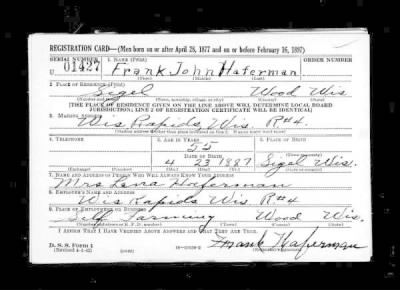 REGISTRATION CARD—(Men born on or after April 28, 1877 and on or before February 16, 1897)
SERIAL NUMBER 1. NAME (Print) ORDER NUMBER
U 01427 Frank John Haferman
(First) (Middle) (Last)
2. PLACE OF RESIDENCE (Print)
Sigel Wood Wis
(Number and street) (Town, township, village, or city) (County) (State)
[THE PLACE OF RESIDENCE GIVEN ON THE LINE ABOVE WILL DETERMINE LOCAL BOARD
JURISDICTION; LINE 2 OF REGISTRATION CERTIFICATE WILL BE IDENTICAL]
3. MAILING ADDRESS
Wis Rapids, Wis. R#4.
4. TELEPHONE 5. AGE IN YEARS 6. PLACE OF BIRTH
55
DATE OF BIRTH Sigel
4 23 1887 Wis.
(Exchange) (Number) (Mo.) (Day) (Yr.) (State or country)
7. NAME AND ADDRESS OF PERSON WHO WILL ALWAYS KNOW YOUR ADDRESS
Mrs Lena Haferman
8. EMPLOYER'S NAME AND ADDRESS
Wis Rapids Wis R#4
9. PLACE OF EMPLOYMENT OR BUSINESS
Self Farming Wood Wis.
(Number and street or R. F. D. number) (Town) (County) (State)
I AFFIRM THAT I HAVE VERIFIED ABOVE ANSWERS AND THAT THEY ARE TRUE.
D. S. S. Form 1
(Revised 4-1-42) Frank Haferman